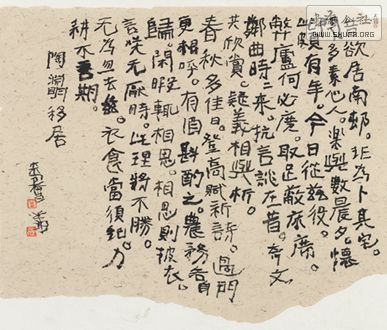 欲居南邨。非为卜其宅。
多素心人。樂與數晨夕。懷
此頗有年。今日從茲役。
弊廬何必廣。取足蔽床席。
鄰曲時三來。抗言談在昔。奇文
共欣賞。疑義相與析。
春秋多佳日。登高賦新詩。過門
更相呼。有酒斟酌之。農務各自
歸。閑暇輒相思。相思則披衣。
言咲无厭時。此理將不勝。
无为忽去茲。衣食當須紀。力
耕不吾欺。
陶淵明移居
WWW.SHUFA.ORG